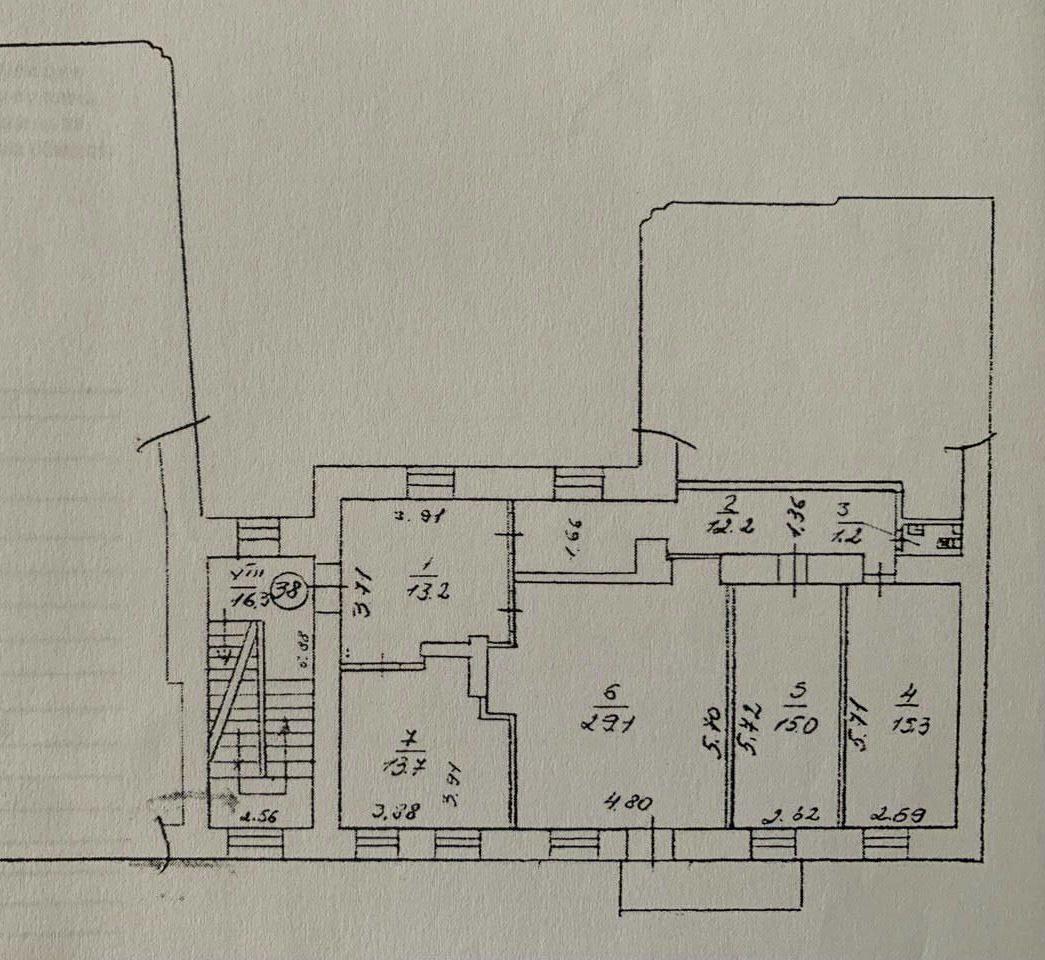 3.91
1
13.2
3.71
1.66
2
12.2
1.36
3
1.2
VIII
16.3
38
6
29.1
5.70
4.80
5
15.0
5.72
2.62
4
15.3
5.71
2.69
7
13.7
3.91
3.38
2.56